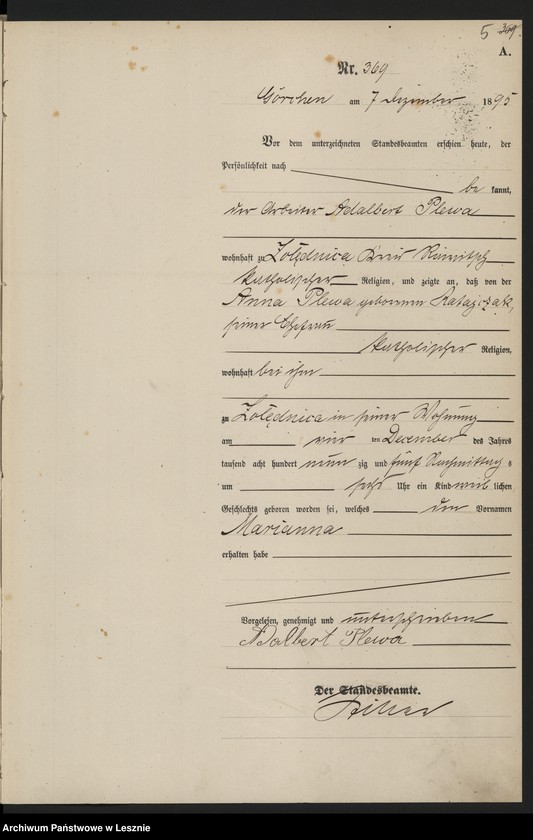 5 369.
A.
Nr. 369
Görchen am 7 Dezember 1895
Vor dem unterzeichneten Standesbeamten erschien heute, der
Persönlichkeit nach
be kannt,
der Arbeiter Adalbert Plewa
wohnhaft zu Zolędnica Kreis Rawitsch
katholischer Religion, und zeigte an, daß von der
Anna Plewa geborenen Ratajczak,
seiner Ehefrau
katholischer Religion,
wohnhaft bei ihm
zu Zolędnica in seiner Wohnung
am vier ten December des Jahres
tausend acht hundert neun zig und fünf Nachmittags
um sechs Uhr ein Kind weib lichen
Geschlechts geboren worden sei, welches den Vornamen
Marianna
erhalten habe
Vorgelesen, genehmigt und unterschrieben
Adalbert Plewa
Der Standesbeamte.
Archiwum Państwowe w Lesznie